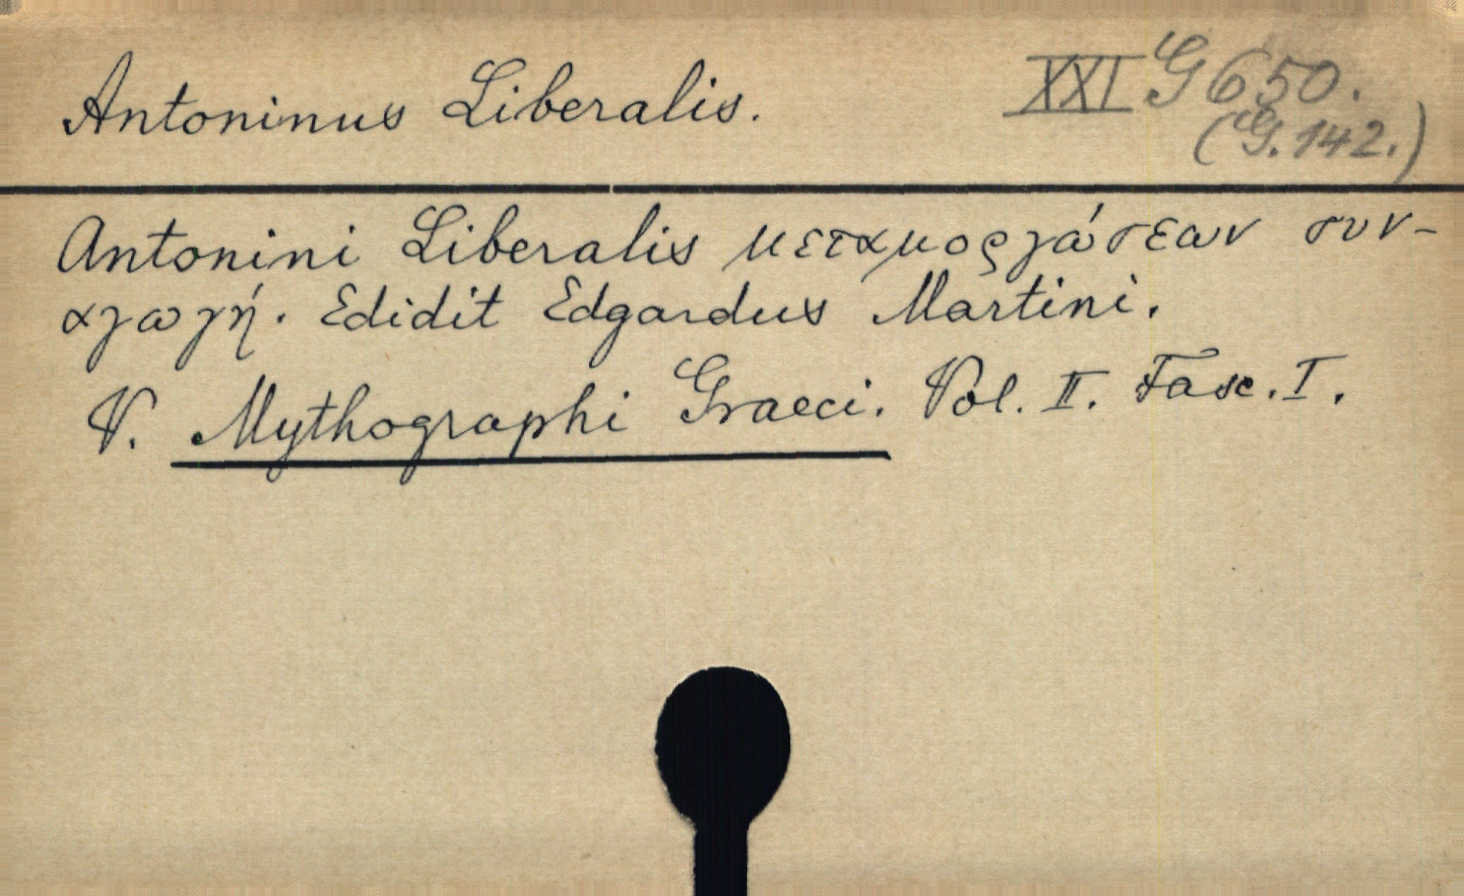 Antoninus Liberalis.
XXI G 650.
(G. 142.)
Antonini Liberalis μεταμοργώσεων συν-
αγωγή. Edidit Edgardus Martini.
V. Mythographi Graeci. Vol. II. Fasc. I.